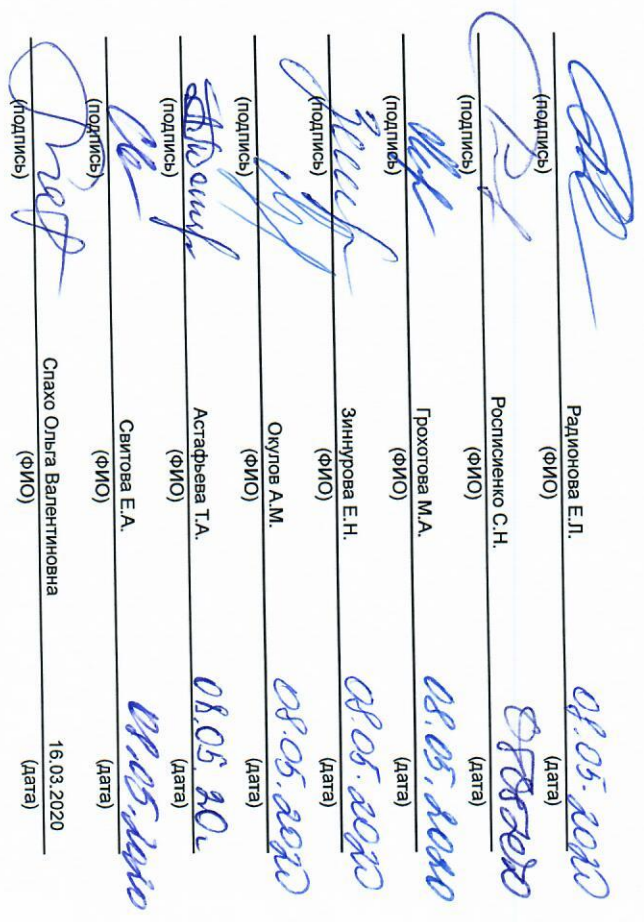 Радионова Е.Л. 08.05.2020
(подпись) (ФИО) (дата)
Росписиенко С.Н. 08052020
(подпись) (ФИО) (дата)
Грохотова М.А. 08.05.2020
(подпись) (ФИО) (дата)
Зиннурова Е.Н. 08.05.2020
(подпись) (ФИО) (дата)
Окулов А.М. 08.05.2020
(подпись) (ФИО) (дата)
Астафьева Т.А. 08.05.20г
(подпись) (ФИО) (дата)
Свитова Е.А. 08.05.2020
(подпись) (ФИО) (дата)
Спахо Ольга Валентиновна 16.03.2020
(подпись) (ФИО) (дата)